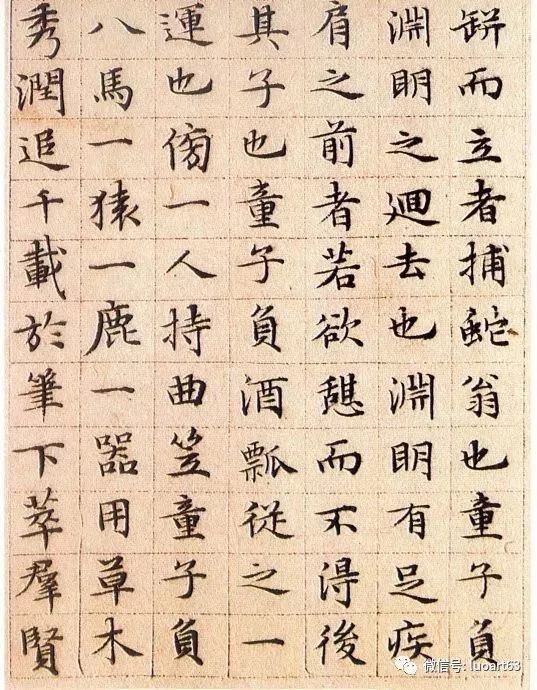 缾而立者捕蛇翁也童子負
淵明之迴去也淵明有足疾
肩之前者若欲憩而不得後
其子也童子負酒瓢從之一
運也傍一人持曲笠童子負
八馬一猿一鹿一器用草木
秀潤追千載於筆下萃羣賢
微信号: luoart63